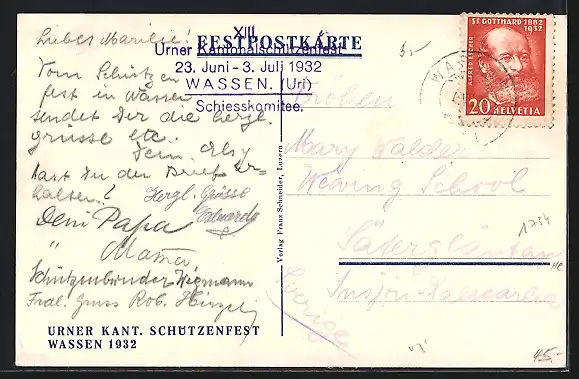 XIII
Urner Kantonalschützenfest
FESTPOSTKARTE
23. Juni - 3. Juli 1932
WASSEN. (Uri)
Schiesskomitee.
ST. GOTTHARD 1882
1932
ALFRED ESCHER
20 HELVETIA
5.-
Liebes
Vom Schützen
fest in Wassen
sendet Dir die herzl.
grüsse etc.
Dein
hast Du den Brief er-
halten!
Herzl. Grüsse
Eduard
Dein Papa
" Mama
Schützenbruder Wegmann
Gruss Rob.
Fröken
Mary Walder
Weaving School
Sätergläntan
Insjön
Sverige
1754
45.-
Verlag Franz Schneider, Luzern
URNER KANT. SCHÜTZENFEST
WASSEN 1932